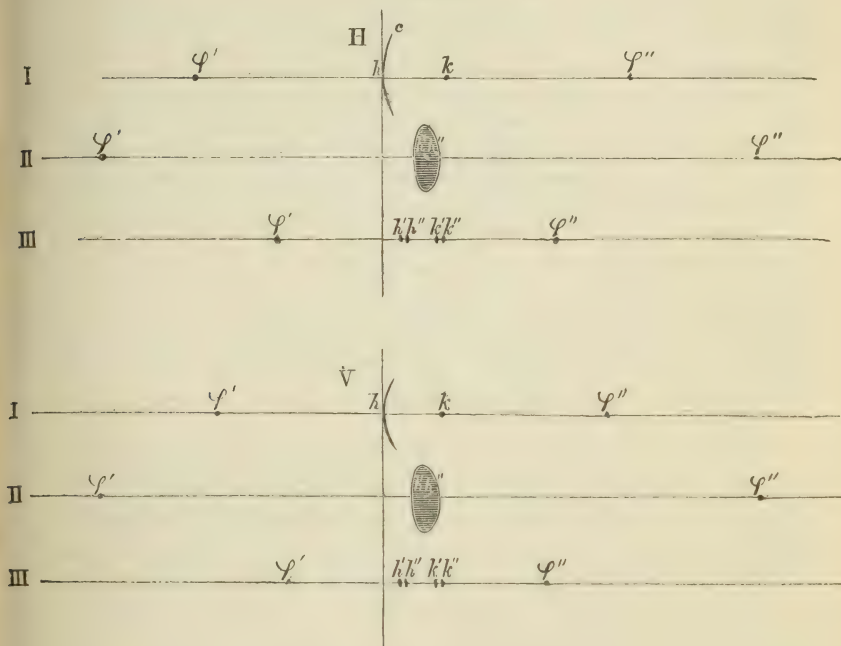 H c
I φ' h k φ"
II φ' φ"
III φ' h'h" k'k" φ"
V
I φ' h k φ"
II φ' φ"
III φ' h'h" k'k" φ"